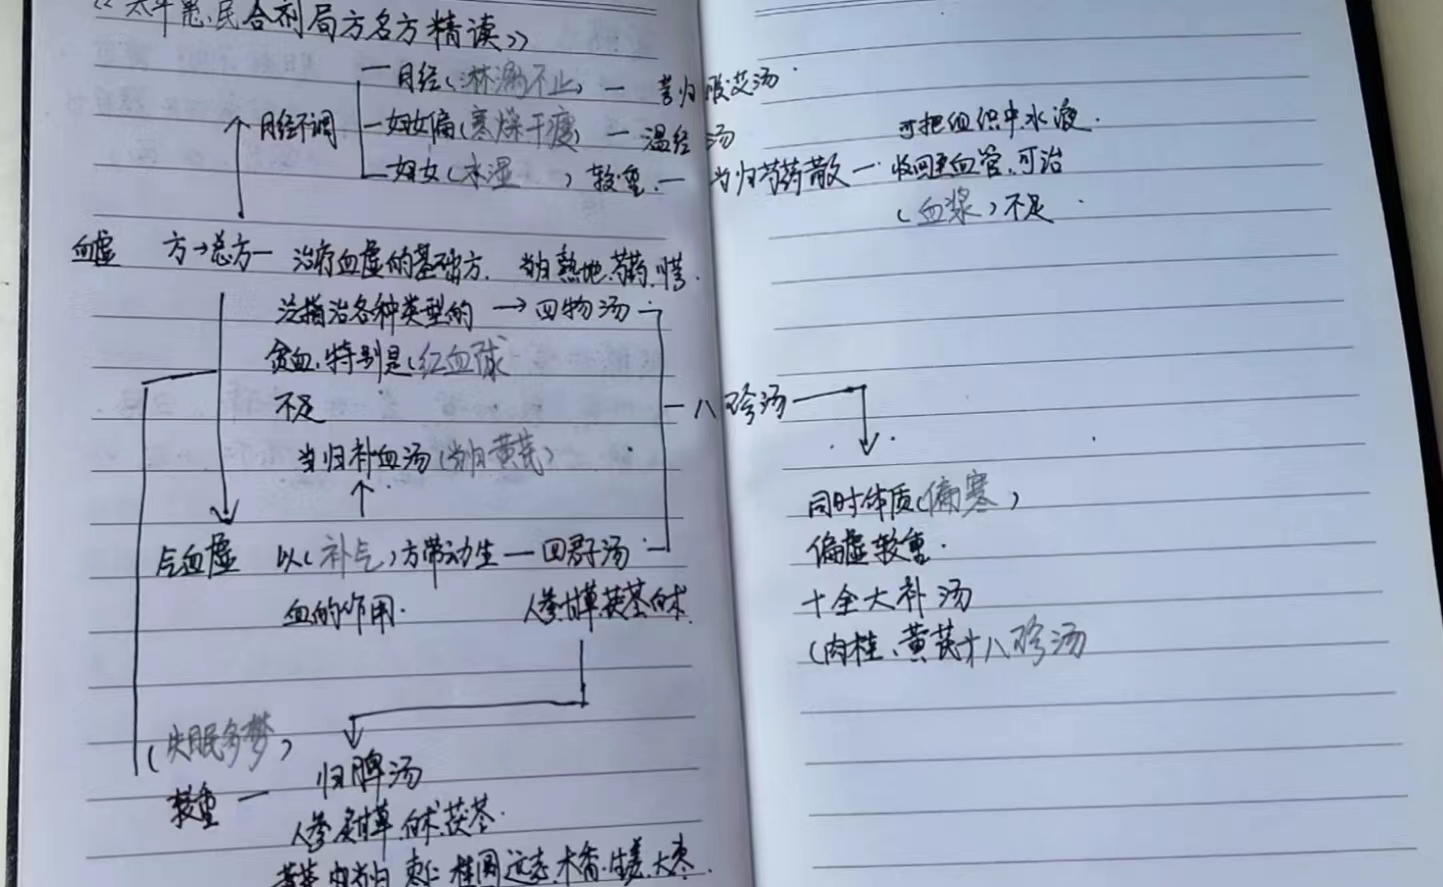 《太平惠民合剂局方名方精读》
月经(淋漓不止) — 芎归胶艾汤
月经不调
妇女偏(寒燥干瘦) — 温经汤
妇女(水湿 )较重 — 当归芍药散 — 可把组织中水液
收回至血管,可治
(血浆)不足
血虚 方→总方— 治疗血虚的基础方. 当归.熟地.芍药.川芎.
泛指治各种类型的 → 四物汤
贫血,特别是(红血球
不足
八珍汤
当归补血汤(当归黄芪)
同时体质(偏寒)
偏虚较重.
气血虚 以(补气)方带动生 — 四君子汤
血的作用. 人参甘草茯苓白术.
十全大补汤
(肉桂、黄芪+八珍汤
(失眠多梦)
较重 — 归脾汤
人参炙甘草.白术.茯苓.
黄芪 当归 枣仁 桂圆 远志.木香.生姜.大枣.